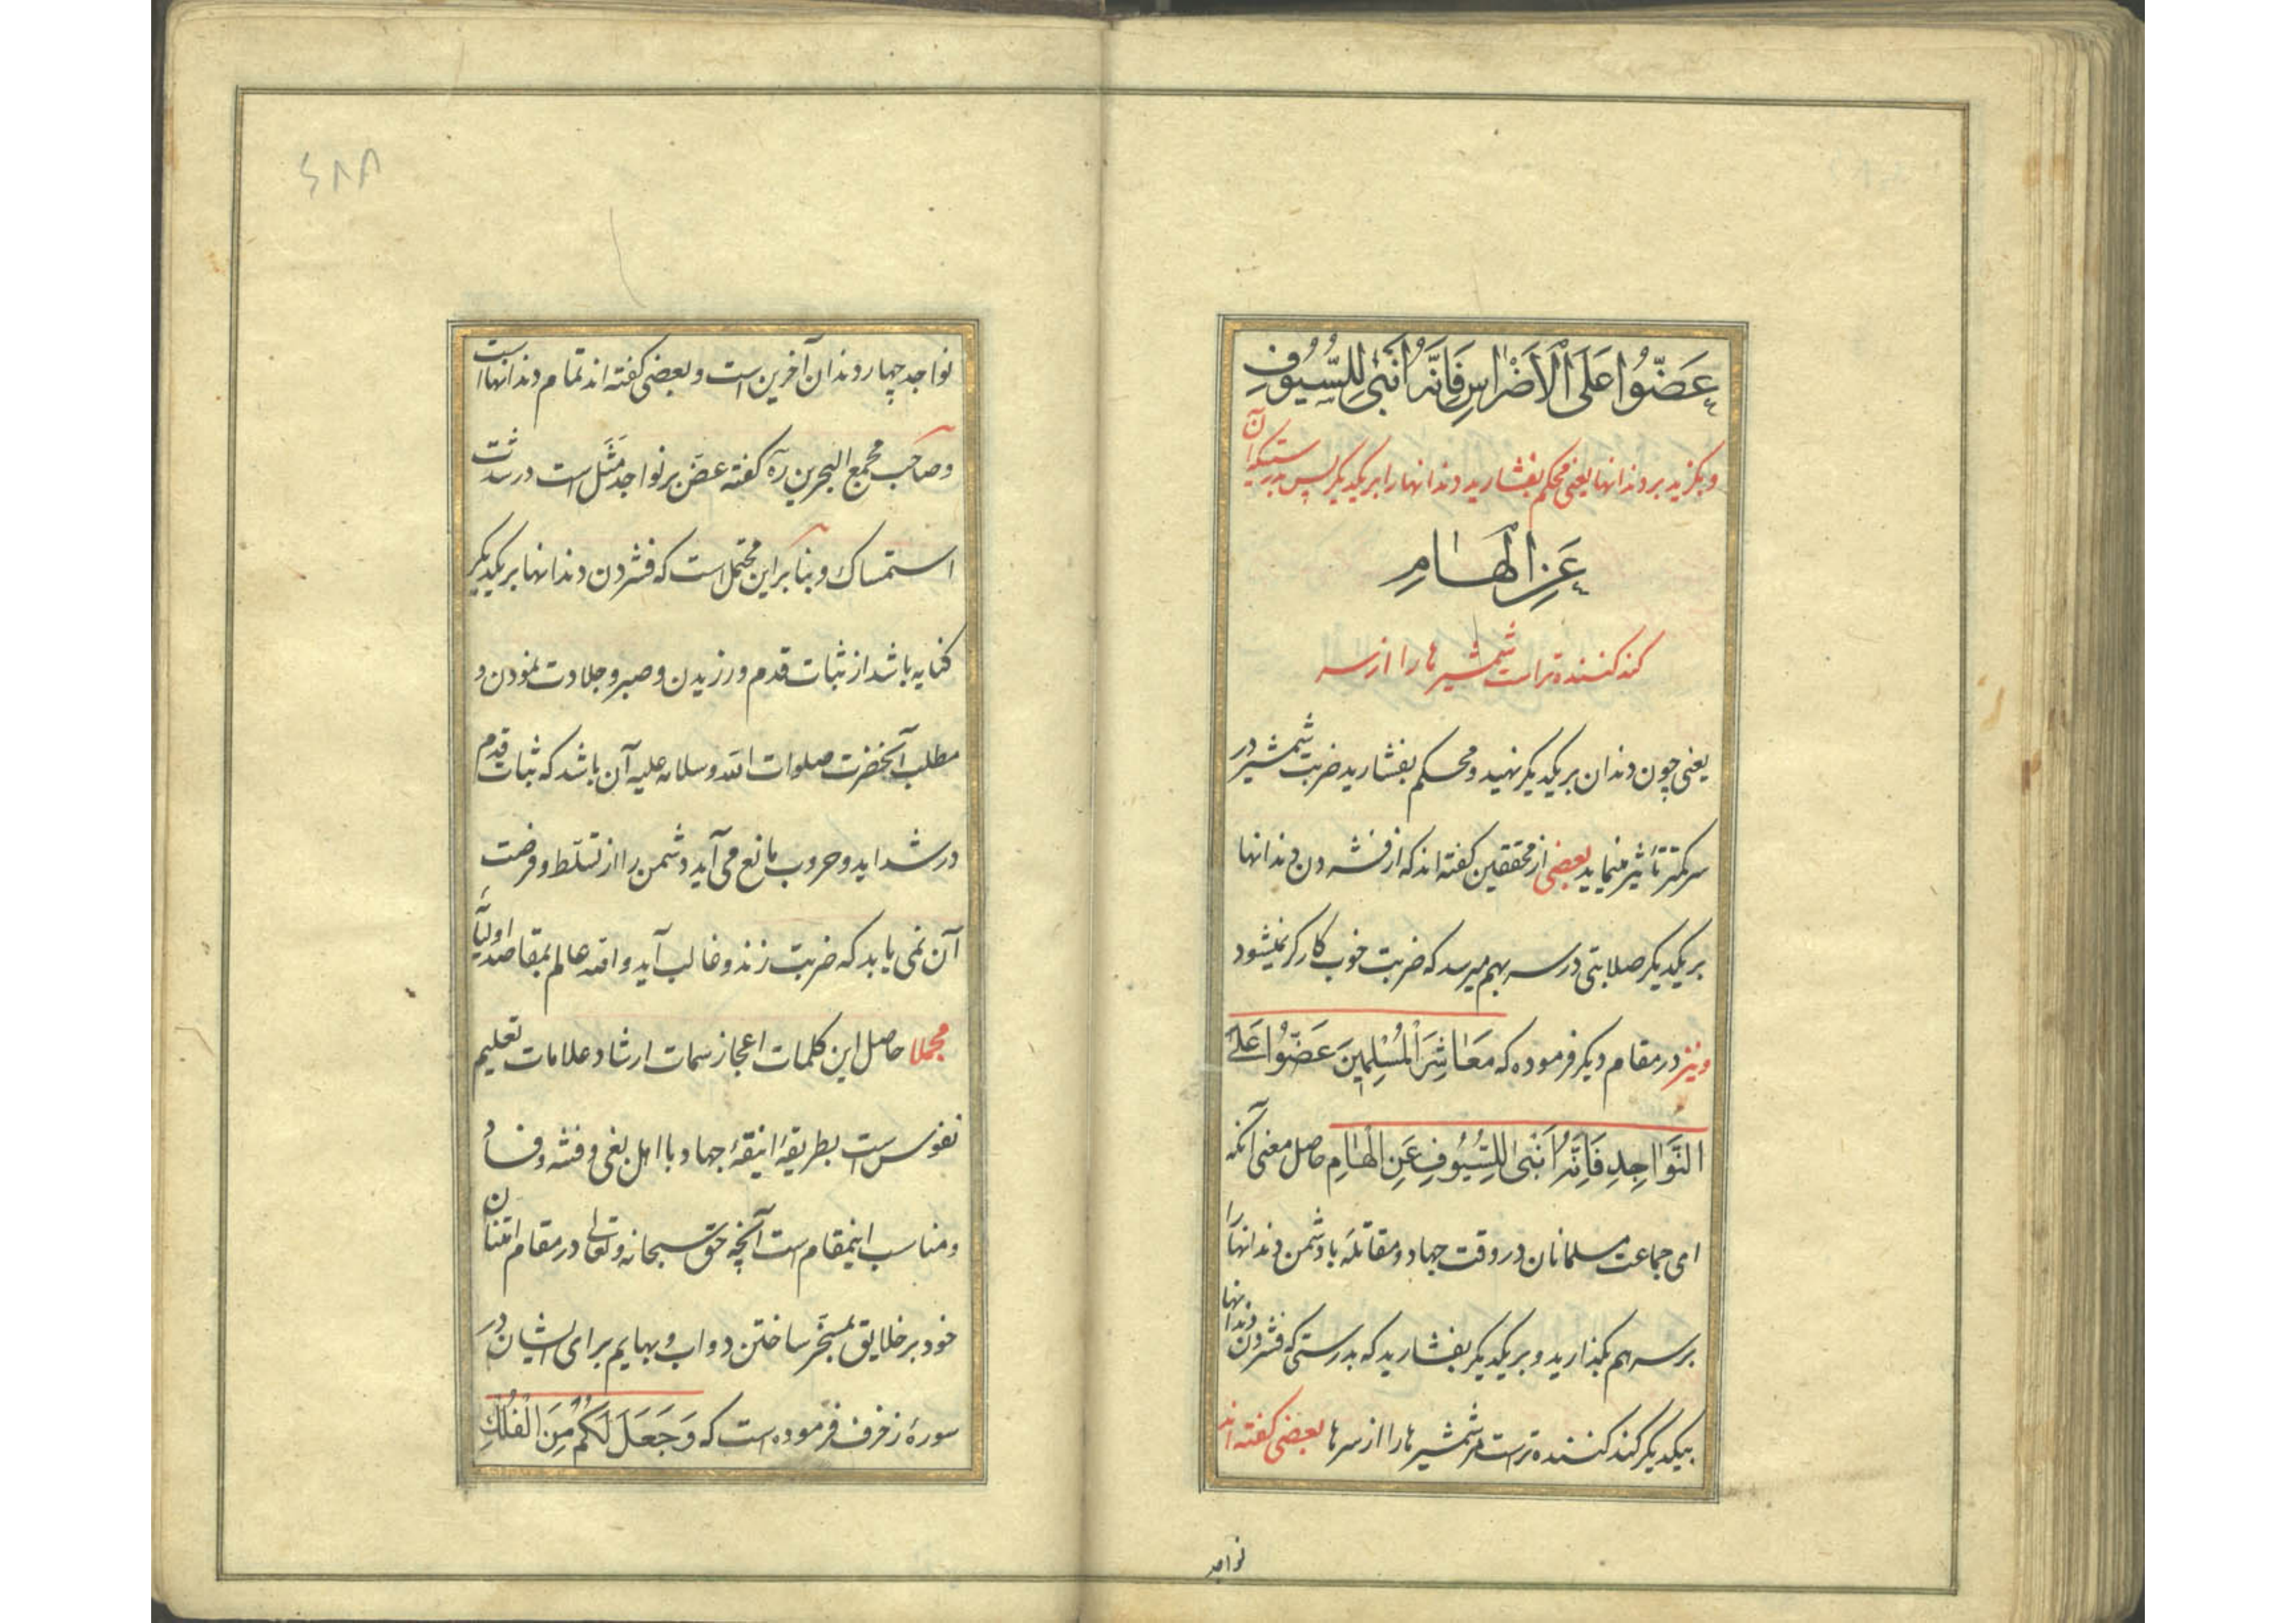 عَضُّوا عَلَى الْاَضْراسِ فَاِنَّهُ اَنْبىٰ لِلسُّيُوفِ
و بگزید بر دندانها یعنی محکم بفشارید دندانها را بر یکدیگر پس بدرستیکه آن
عَنِ الْهٰامِ
کند کننده تر است شمشیرها را از سر
یعنی چون دندان بر یکدیگر نهید و محکم بفشارید ضربت شمشیر در
سر کمتر تأثیر مینماید بعضی از محققین گفته اند که از فشردن دندانها
بر یکدیگر صلابتی در سر بهم میرسد که ضربت خوب کارگر نمیشود
و نیز در مقام دیگر فرموده که مَعٰاشِرَ الْمُسْلِمِینَ عَضُّوا عَلَی
النَّوٰاجِدِ فَاِنَّهُ اَنْبىٰ لِلسُّیُوفِ عَنِ الْهٰامِ حاصل معنی آنکه
ای جماعت مسلمانان در وقت جهاد و مقاتله با دشمن دندانها را
بر سر هم بگذارید و بر یکدیگر بفشارید که بدرستی که فشردن دندانها
بیکدیگر کند کننده تر است مر شمشیرها را از سرها بعضی گفته اند
نواجد
نواجد چهار دندان آخرین است و بعضی گفته اند تمام دندانها است
و صاحب مجمع البحرین ره گفته عضّ بر نواجد مَثَل است در شدت
استمساک و بنا بر این محتمل است که فشردن دندانها بر یکدیگر
کنایه باشد از ثبات قدم ورزیدن و صبر و جلادت نمودن و
مطلب آنحضرت صلوات الله و سلامه علیه آن باشد که ثبات قدم
در شداید و حروب مانع می آید دشمن را از تسلّط و فرصت
آن نمی یابد که ضربت زند و غالب آید والله عالم بمقاصد اولیائه
مجملا حاصل این کلمات اعجاز سمات ارشاد علامات تعلیم
نفوس است بطریقهٔ انیقهٔ جهاد با اهل بغی و فتنه و فساد
و مناسب اینمقام است آنچه حق سبحانه و تعالی در مقام امتنان
خود بر خلایق بمسخّر ساختن دواب و بهایم برای ایشان در
سورهٔ زخرف فرموده است که وَجَعَلَ لَکُمْ مِنَ الْفُلْكِ